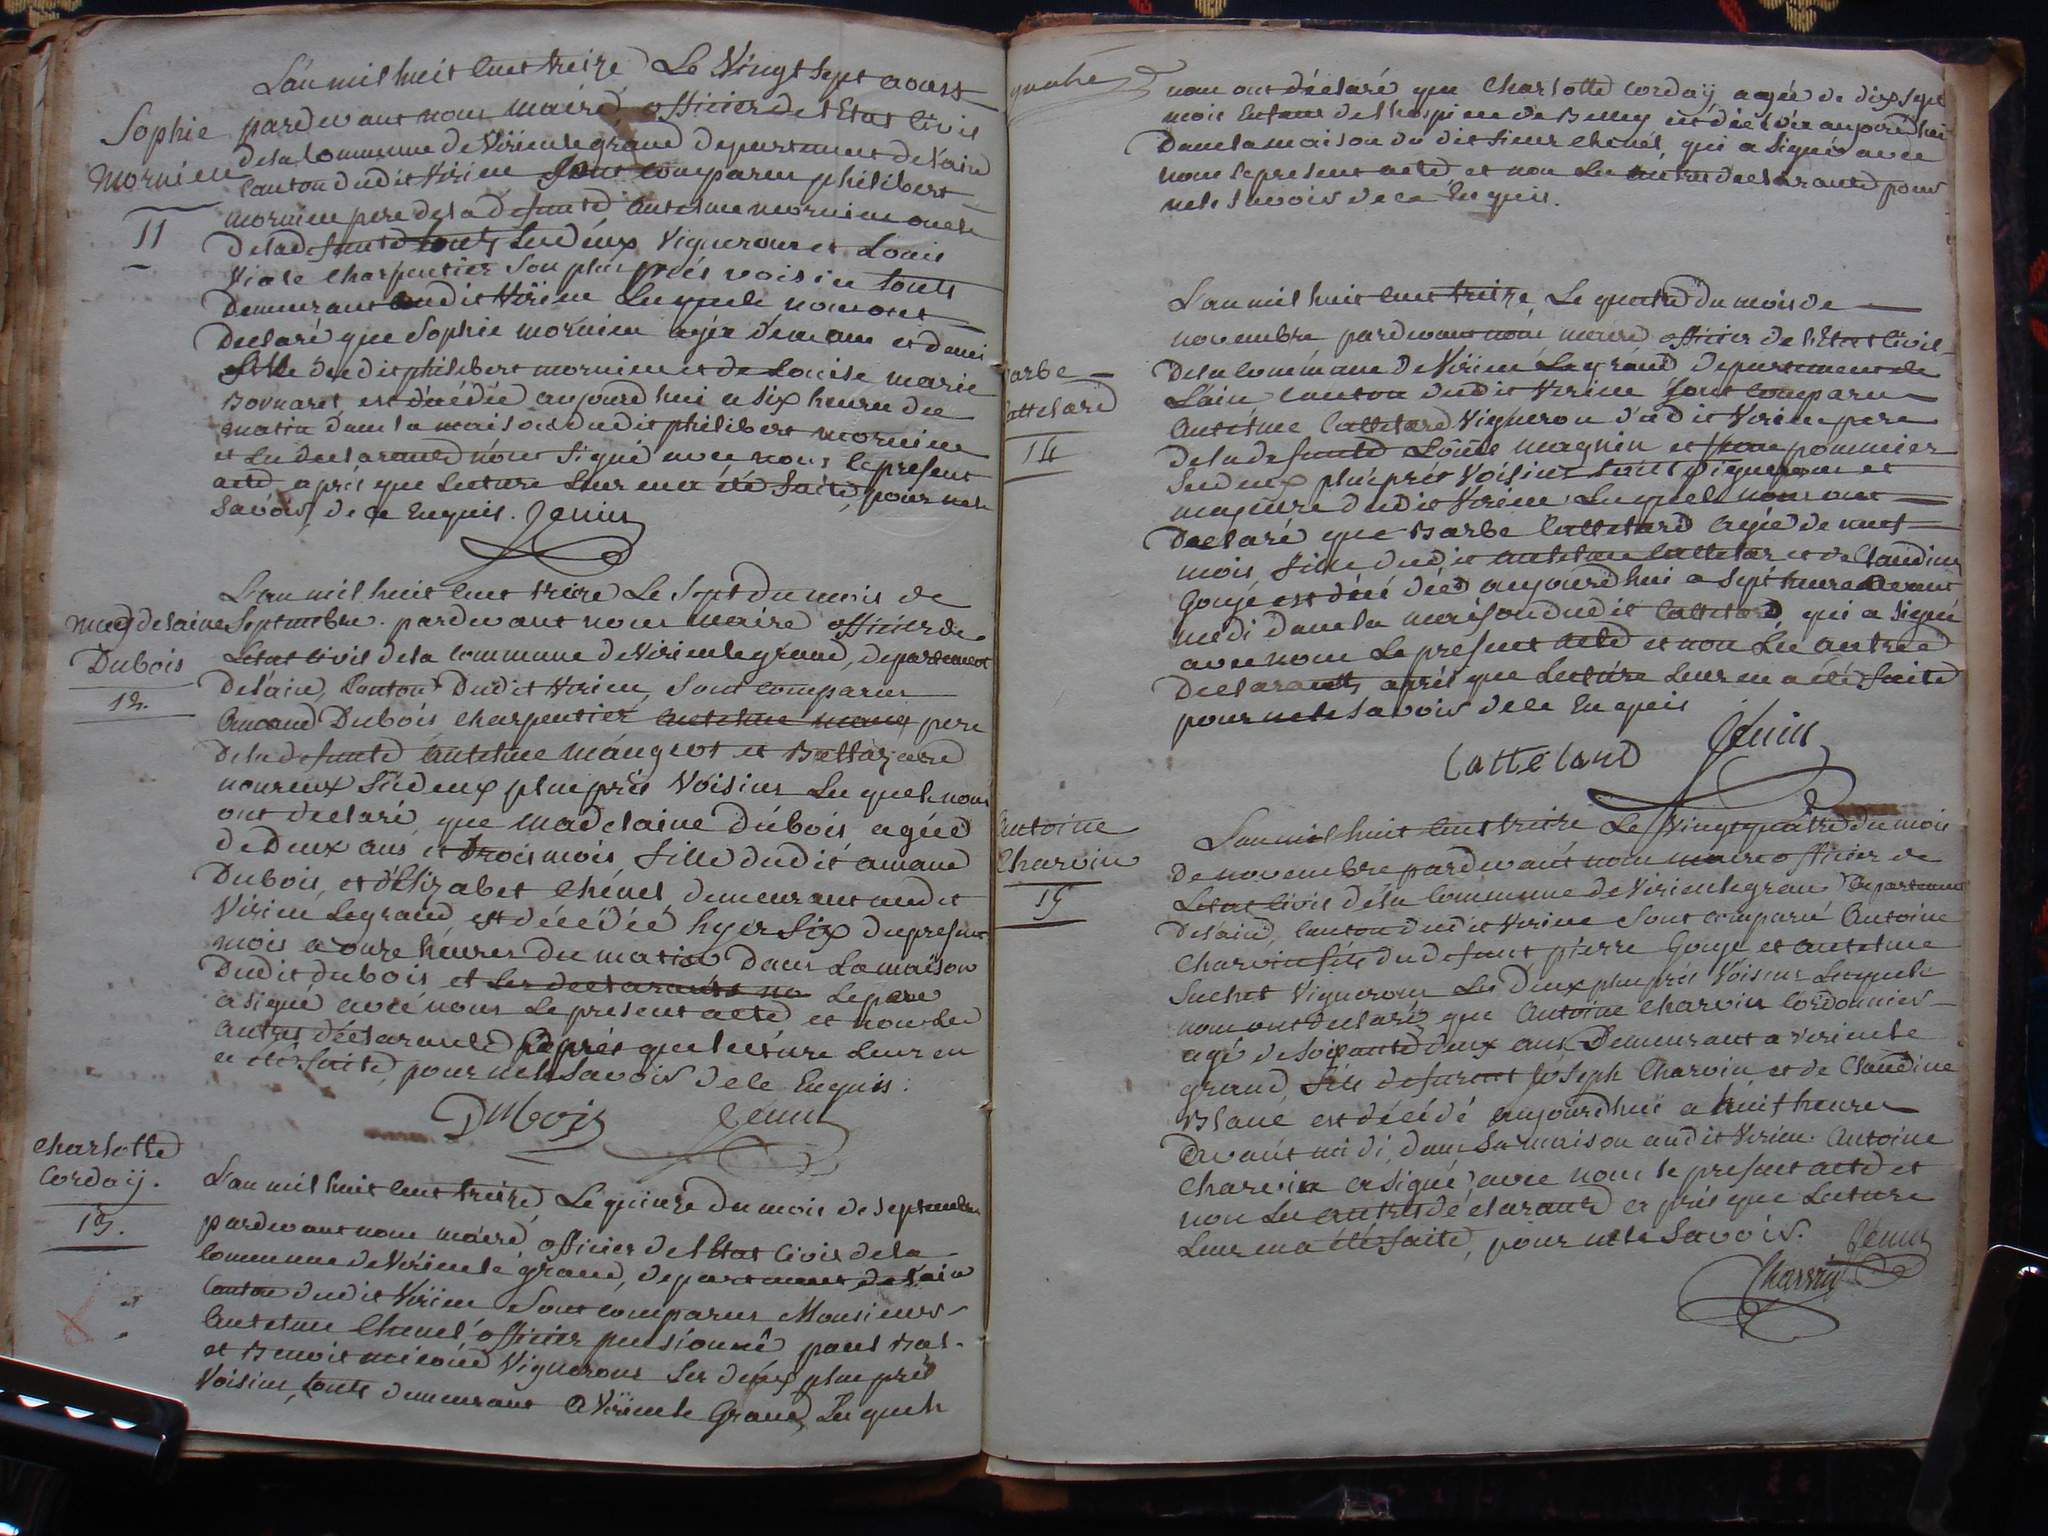 L'an mil huit cent treize Le Vingt Sept aoust
Sophie
Mornieu
11
pardevant nous maire, officier de l'Etat Civil
de la Commune de Virieu le grand Departement de l'ain
Canton dudit Virieu Sont Comparu philibert
mornieu pere de la defunte antelme mornieu oncle
de la defunte touts Les deux Vignerons et Louis
Viale Charpentier Son plus près voisin touts
Demeurant audit Virieu Lesquels nous ont
Declaré que Sophie mornieu agée d'un ans et demi
fille dudit philibert mornieu et de Louise marie
Bornaret est décédée aujourd'hui a six heures du
matin dans la maison dudit philibert mornieu
et Les declarants n'ont Signé avec nous le present
acte après que Lecture Leur en a été faite, pour ne le
Savoir de ce Enquis. Jenin
Magdelaine
Dubois
12.
L'an mil huit cent treize Le Sept du mois de
Septembre pardevant nous maire officier de
L'etat Civil de la Commune de Virieu le grand, departement
de l'ain, Canton Dudit Virieu, Sont Comparus
Amand Dubois Charpentier pere
de la defunte antelme Mangeot et Baltazard
noureux Ses deux plus près Voisins Lesquels nous
ont declaré que Madelaine Dubois agée
de Deux ans et trois mois, fille dudit amand
Dubois, et d'Elizabet Chenel demeurant audit
Virieu Legrand, est décédée hyer Six du present
mois a onze heures du matin Dans La maison
Dudit dubois et Les declarants no Le pere
a signé avec nous Le present acte et non Les
autres déclarants après que lecture Leur en
a été faite, pour ne le Savoir de ce Enquis.
Dubois Jenin
Charlotte
Cordaÿ.
13.
L'an mil huit cent treize Le quinze du mois de Septembre
pardevant nous maire, officier de l'Etat Civil de la
Commune de Virieu le grand, departement de l'ain
Canton dudit Virieu Sont Comparus Monsieur
antelme Chenel officier pensionné paul Bal
et Benoit Vignerons Ses deux plus près
Voisins, touts demeurant a Virieu le Grand, Lesquels
nous ont déclaré que Charlotte Cordaÿ agée de dix sept
mois Enfant de l'hospice de Belley est décédée aujourd'hui
Dans la maison du dit Sieur Chenel qui a Signé avec
nous le present acte et non Les autres declarants pour
ne le Savoir de ce Enquis.
Barbe
Cattelard
14
L'an mil huit cent treize, Le quatre du mois de
novembre pardevant nous maire officier de l'Etat Civil
De la Commune de Virieu Le grand Departement de
L'ain Canton dudit Virieu Sont Comparu
antelme Cattelard Vigneron dudit Virieu pere
de la defunte Louis magnin et pommier
Ses deux plus près Voisins tous Vignerons et
majeurs dudit Virieu Lesquels nous ont
Declaré que Barbe Cattelard agée de neuf
mois, fille dudit antelme Cattelar et de Claudine
Gouje est décédée aujourd'hui a Sept heures avant
medi dans la maison dudit Cattelard qui a Signé
avec nous Le present acte et non Les autres
Declarants, après que Lecture Leur en a été faite
pour ne le Savoir de ce Enquis
Cattelard Jenin
Antoine
Charvin
15
L'an mil huit cent treize Le Vingt quatre du mois
De novembre pardevant nous maire officier de
L'etat Civil de la Commune de Virieu le gran Departement
De l'ain, Canton dudit Virieu Sont Comparu Antoine
Charvin fils du defunt pierre Gouje et antelme
Suchet Vignerons Les Deux plus près Voisins Lesquels
nous ont declaré que Antoine Charvin Cordonnier
agé de Soixante deux ans Demeurant a Virieu le
grand, fils defunt Joseph Charvin et de Claudine
Blanc est décédé aujourd'hui a huit heures
avant midi, dans Sa maison audit Virieu. Antoine
Charvin a signé avec nous le present acte et
non Les autres déclarans après que Lecture
Leur en a été faite, pour ne le Savoir. Jenin
Charvin